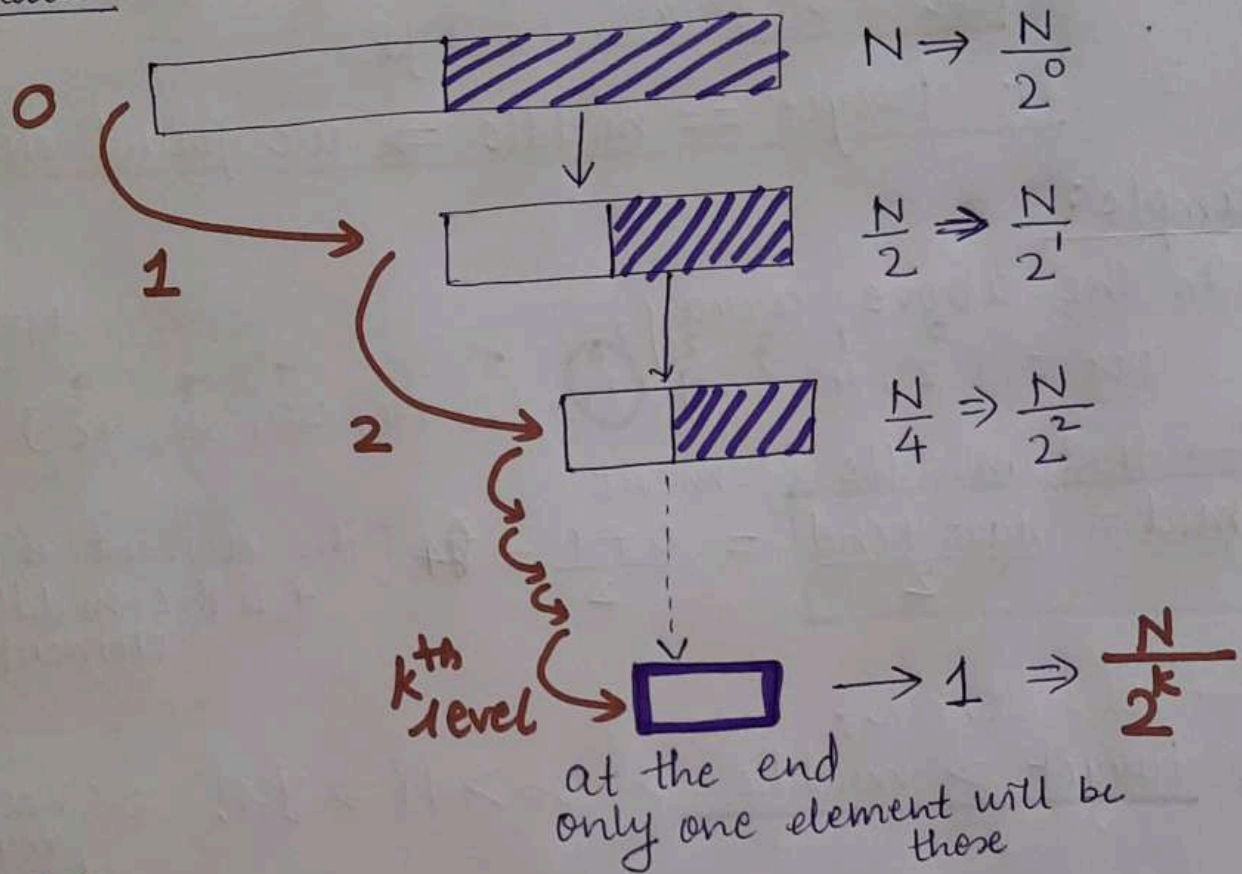 0
N ⇒ N/2^0
1
N/2 ⇒ N/2^1
2
N/4 ⇒ N/2^2
k^th level
→ 1 ⇒ N/2^k
at the end
only one element will be
there